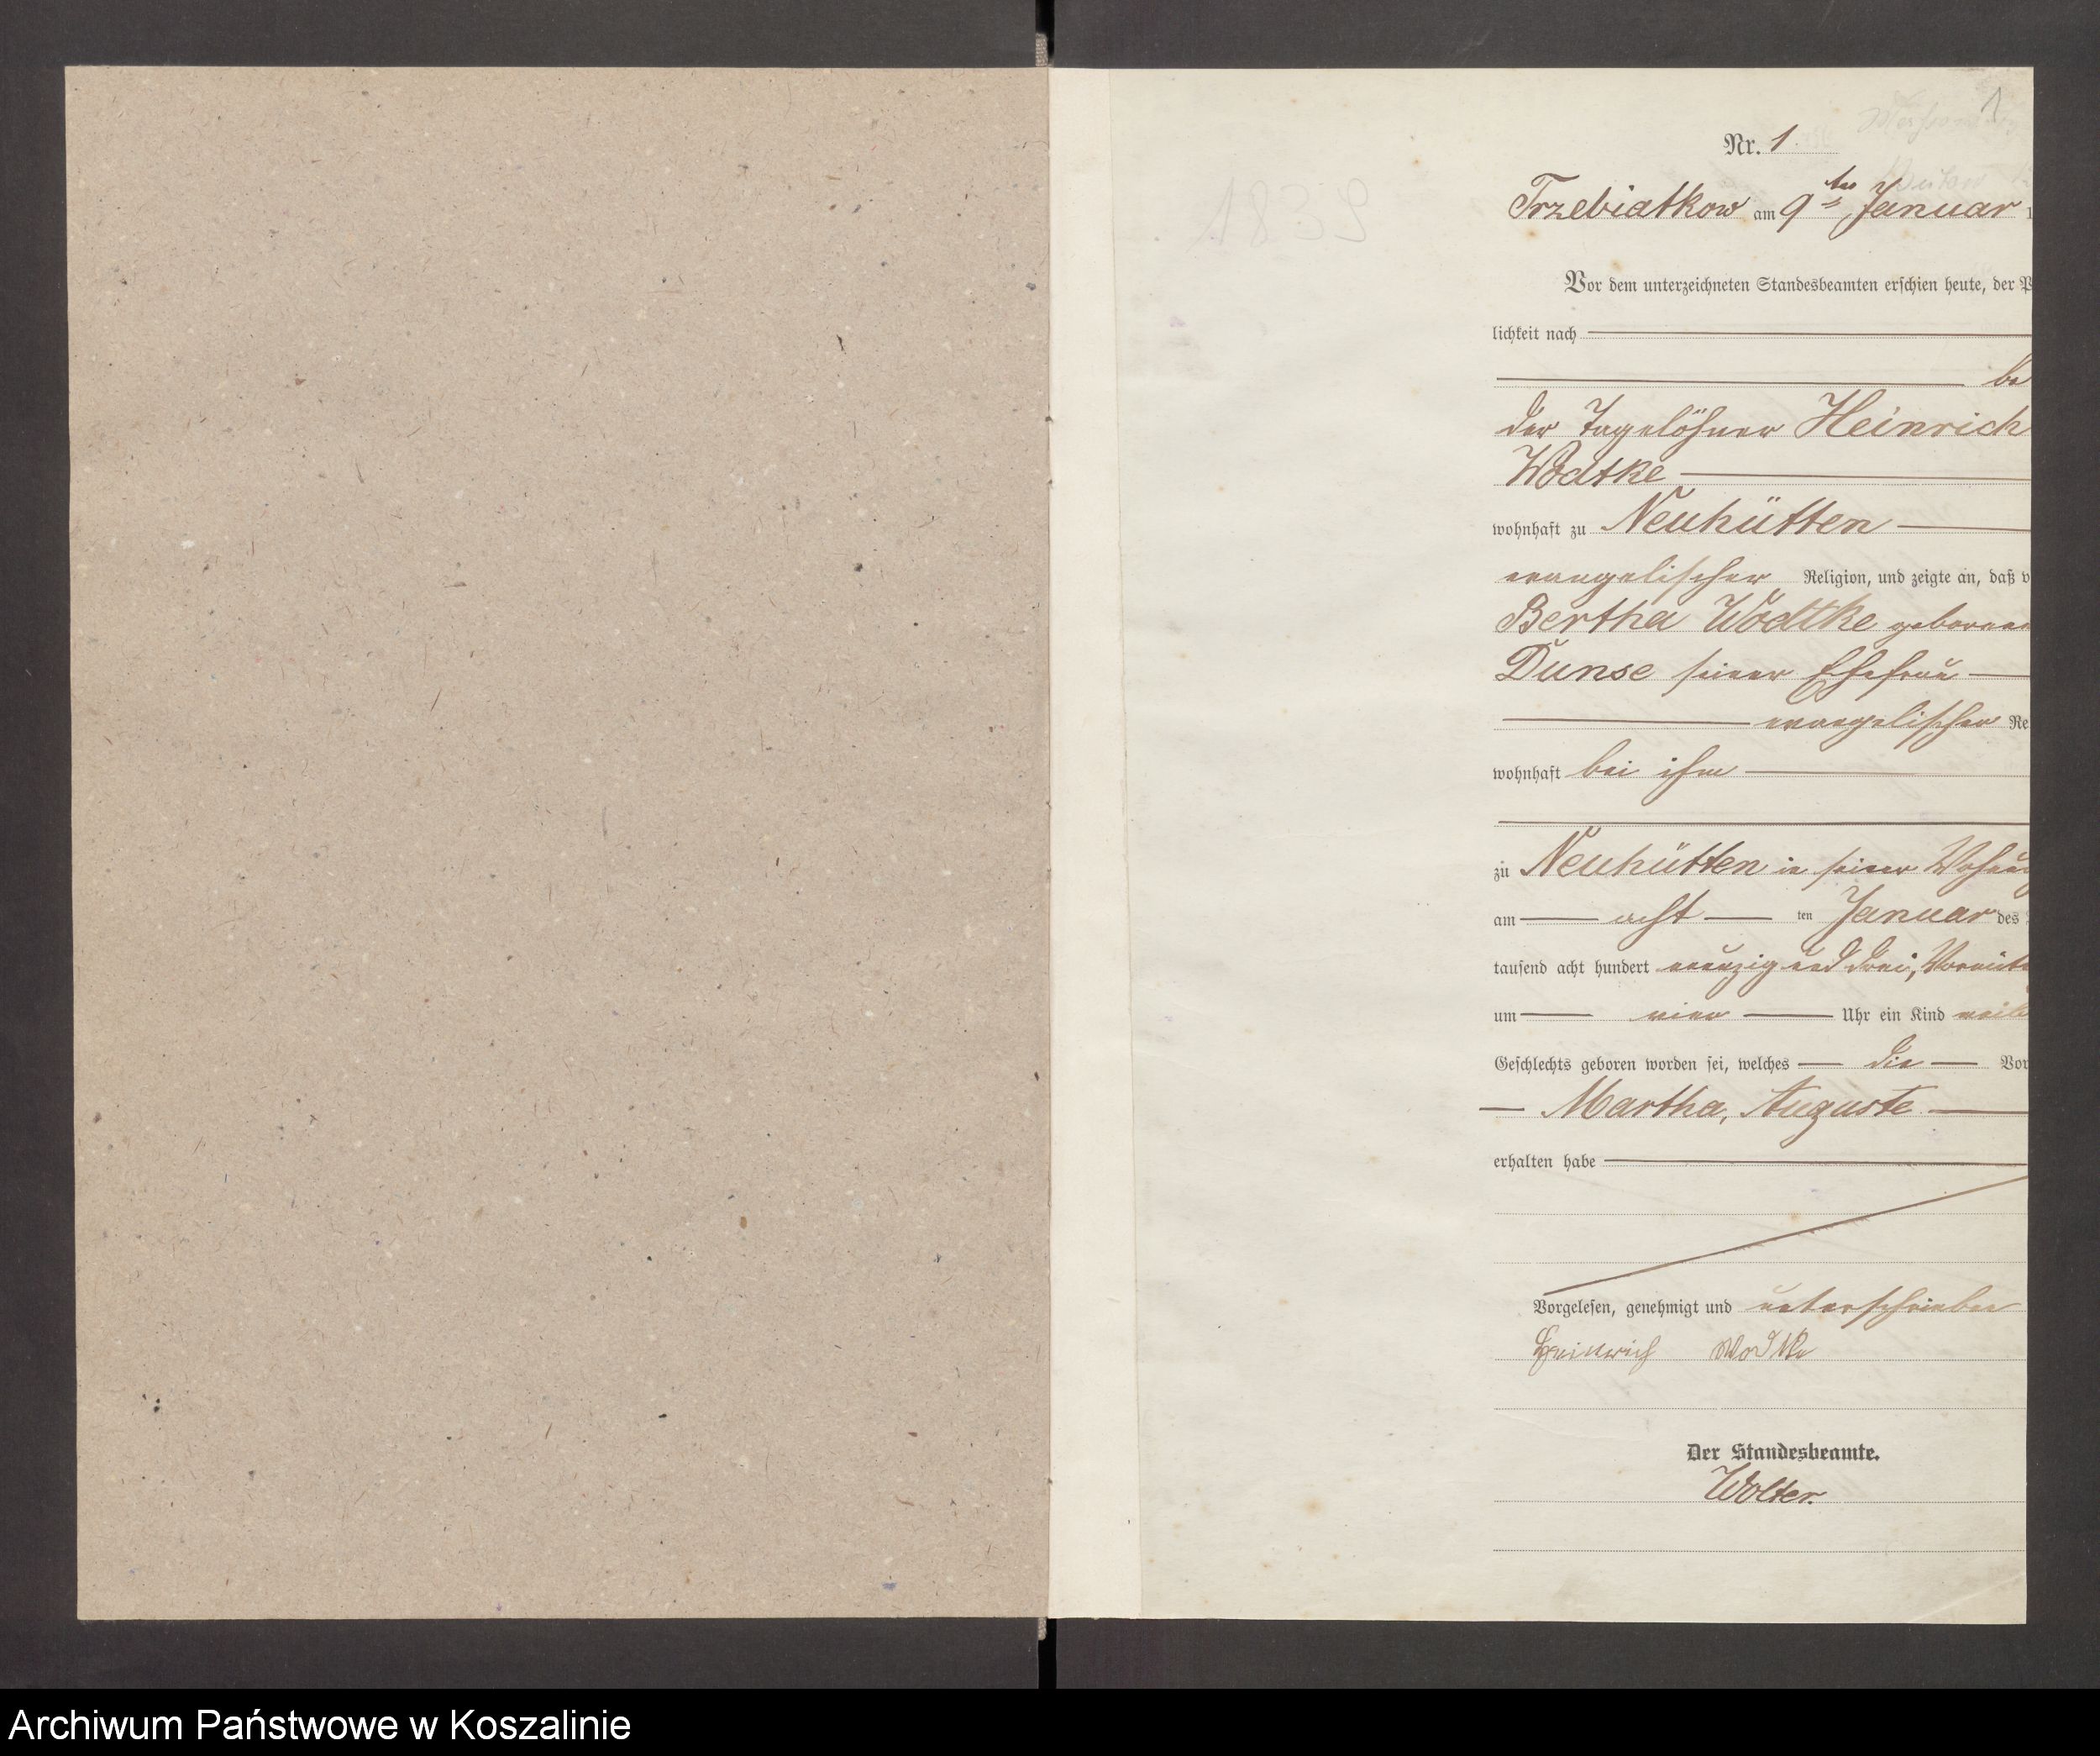 1
Nr. 1.
1839
Trzebiatkow am 9ten Januar 1
Vor dem unterzeichneten Standesbeamten erschien heute, der P
lichkeit nach
be
der Tagelöhner Heinrich
Wodtke
wohnhaft zu Neuhütten
evangelischer Religion, und zeigte an, daß v
Bertha Wodtke geborenen
Dunse seiner Ehefrau
evangelischer Re
wohnhaft bei ihm
zu Neuhütten in seiner Wohnung
am acht ten Januar des
tausend acht hundert neunzig und drei, Vormitt
um vier Uhr ein Kind weib
Geschlechts geboren worden sei, welches die Vor
Martha, Auguste
erhalten habe
Vorgelesen, genehmigt und unterschrieben
Heinrich Wodtke
Der Standesbeamte.
Wolter.
Archiwum Państwowe w Koszalinie